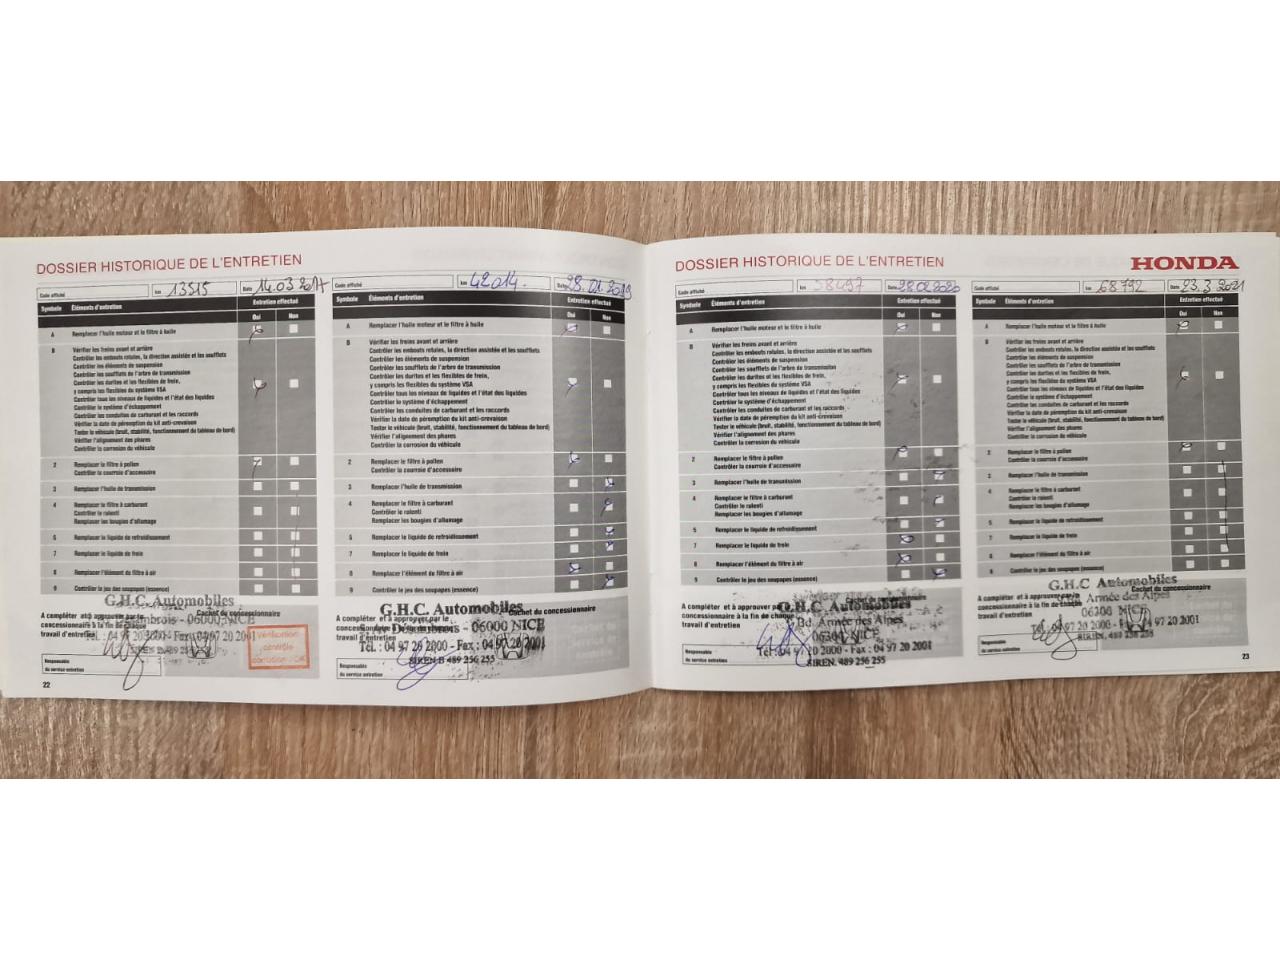 DOSSIER HISTORIQUE DE L'ENTRETIEN
Code affiché
km 13515
Date 14.03 2017
Symbole Éléments d'entretien Entretien effectué
Oui Non
A Remplacer l'huile moteur et le filtre à huile
B Vérifier les freins avant et arrière
Contrôler les embouts rotules, la direction assistée et les soufflets
Contrôler les éléments de suspension
Contrôler les soufflets de l'arbre de transmission
Contrôler les durites et les flexibles de frein,
y compris les flexibles du système VSA
Contrôler tous les niveaux de liquides et l'état des liquides
Contrôler le système d'échappement
Contrôler les conduites de carburant et les raccords
Vérifier la date de péremption du kit anti-crevaison
Tester le véhicule (bruit, stabilité, fonctionnement du tableau de bord)
Vérifier l'alignement des phares
Contrôler la corrosion du véhicule
2 Remplacer le filtre à pollen
Contrôler la courroie d'accessoire
3 Remplacer l'huile de transmission
4 Remplacer le filtre à carburant
Contrôler le ralenti
Remplacer les bougies d'allumage
5 Remplacer le liquide de refroidissement
7 Remplacer le liquide de frein
8 Remplacer l'élément du filtre à air
9 Contrôler le jeu des soupapes (essence)
G.H.C. Automobiles
06000 NICE
Tél. : 04 97 20 2000 - Fax : 04 97 20 2001
SIREN B 489 256 255
A compléter et à approuver par le
concessionnaire à la fin de chaque
travail d'entretien
Cachet du concessionnaire
Vérification
contrôle
corrosion : OK
Responsable
du service entretien
22
Code affiché
km 42014
Date 28.01 2019
Symbole Éléments d'entretien Entretien effectué
Oui Non
A Remplacer l'huile moteur et le filtre à huile
B Vérifier les freins avant et arrière
Contrôler les embouts rotules, la direction assistée et les soufflets
Contrôler les éléments de suspension
Contrôler les soufflets de l'arbre de transmission
Contrôler les durites et les flexibles de frein,
y compris les flexibles du système VSA
Contrôler tous les niveaux de liquides et l'état des liquides
Contrôler le système d'échappement
Contrôler les conduites de carburant et les raccords
Vérifier la date de péremption du kit anti-crevaison
Tester le véhicule (bruit, stabilité, fonctionnement du tableau de bord)
Vérifier l'alignement des phares
Contrôler la corrosion du véhicule
2 Remplacer le filtre à pollen
Contrôler la courroie d'accessoire
3 Remplacer l'huile de transmission
4 Remplacer le filtre à carburant
Contrôler le ralenti
Remplacer les bougies d'allumage
5 Remplacer le liquide de refroidissement
7 Remplacer le liquide de frein
8 Remplacer l'élément du filtre à air
9 Contrôler le jeu des soupapes (essence)
G.H.C. Automobiles
06000 NICE
Tél. : 04 97 20 2000 - Fax : 04 97 20 2001
SIREN B 489 256 255
A compléter et à approuver par le
concessionnaire à la fin de chaque
travail d'entretien
Cachet du concessionnaire
Responsable
du service entretien
DOSSIER HISTORIQUE DE L'ENTRETIEN
HONDA
Code affiché
km 58497
Date 28.02 2020
Symbole Éléments d'entretien Entretien effectué
Oui Non
A Remplacer l'huile moteur et le filtre à huile
B Vérifier les freins avant et arrière
Contrôler les embouts rotules, la direction assistée et les soufflets
Contrôler les éléments de suspension
Contrôler les soufflets de l'arbre de transmission
Contrôler les durites et les flexibles de frein,
y compris les flexibles du système VSA
Contrôler tous les niveaux de liquides et l'état des liquides
Contrôler le système d'échappement
Contrôler les conduites de carburant et les raccords
Vérifier la date de péremption du kit anti-crevaison
Tester le véhicule (bruit, stabilité, fonctionnement du tableau de bord)
Vérifier l'alignement des phares
Contrôler la corrosion du véhicule
2 Remplacer le filtre à pollen
Contrôler la courroie d'accessoire
3 Remplacer l'huile de transmission
4 Remplacer le filtre à carburant
Contrôler le ralenti
Remplacer les bougies d'allumage
5 Remplacer le liquide de refroidissement
7 Remplacer le liquide de frein
8 Remplacer l'élément du filtre à air
9 Contrôler le jeu des soupapes (essence)
G.H.C. Automobiles
Bd. Armée des Alpes
06300 NICE
Tél : 04 97 20 2000 - Fax : 04 97 20 2001
SIREN. 489 256 255
A compléter et à approuver par le
concessionnaire à la fin de chaque
travail d'entretien
Cachet du concessionnaire
Responsable
du service entretien
Code affiché
km 68792
Date 23.3 2021
Symbole Éléments d'entretien Entretien effectué
Oui Non
A Remplacer l'huile moteur et le filtre à huile
B Vérifier les freins avant et arrière
Contrôler les embouts rotules, la direction assistée et les soufflets
Contrôler les éléments de suspension
Contrôler les soufflets de l'arbre de transmission
Contrôler les durites et les flexibles de frein,
y compris les flexibles du système VSA
Contrôler tous les niveaux de liquides et l'état des liquides
Contrôler le système d'échappement
Contrôler les conduites de carburant et les raccords
Vérifier la date de péremption du kit anti-crevaison
Tester le véhicule (bruit, stabilité, fonctionnement du tableau de bord)
Vérifier l'alignement des phares
Contrôler la corrosion du véhicule
2 Remplacer le filtre à pollen
Contrôler la courroie d'accessoire
3 Remplacer l'huile de transmission
4 Remplacer le filtre à carburant
Contrôler le ralenti
Remplacer les bougies d'allumage
5 Remplacer le liquide de refroidissement
7 Remplacer le liquide de frein
8 Remplacer l'élément du filtre à air
9 Contrôler le jeu des soupapes (essence)
G.H.C. Automobiles
Bd. Armée des Alpes
06300 NICE
Tél : 04 97 20 2000 - Fax : 04 97 20 2001
SIREN. 489 256 255
A compléter et à approuver par le
concessionnaire à la fin de chaque
travail d'entretien
Cachet du concessionnaire
Responsable
du service entretien
23